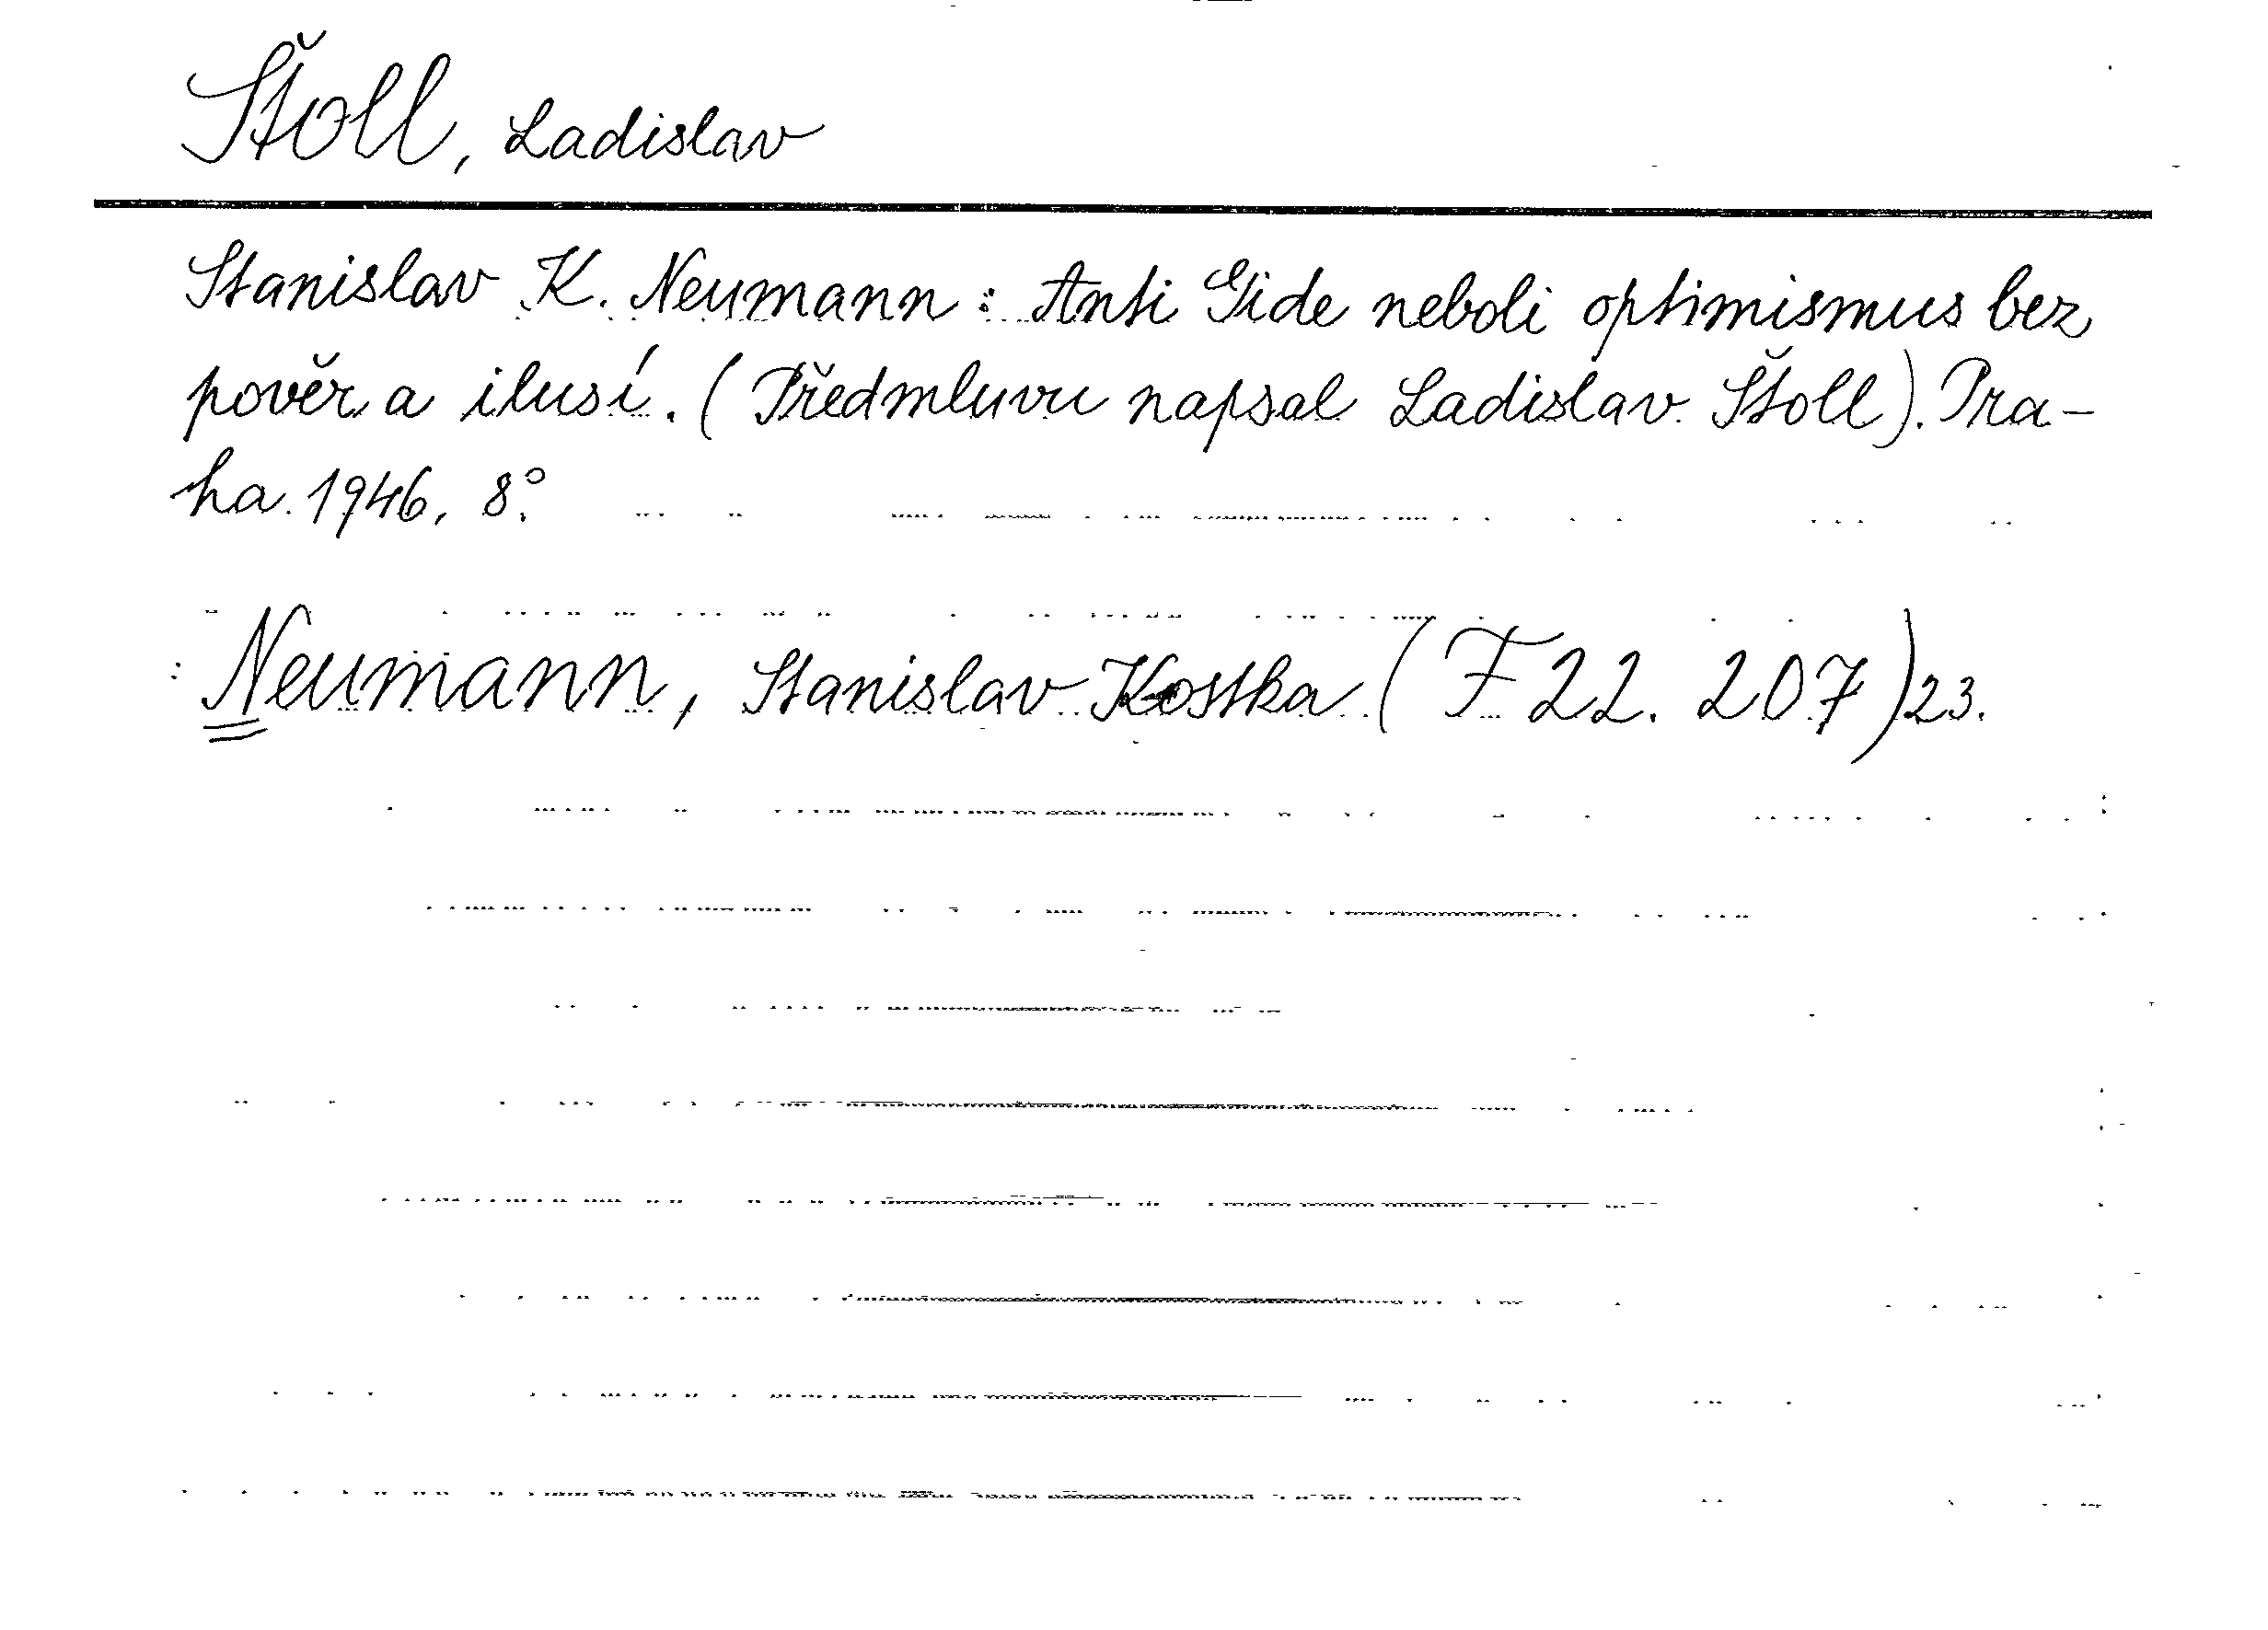 Štoll, Ladislav
Stanislav K. Neumann: Anti Gide neboli optimismus bez
pověr a ilusí. (Předmluvu napsal Ladislav Štoll). Pra-
ha 1946, 8°.
Neumann, Stanislav Kostka (F 22. 207) 23.